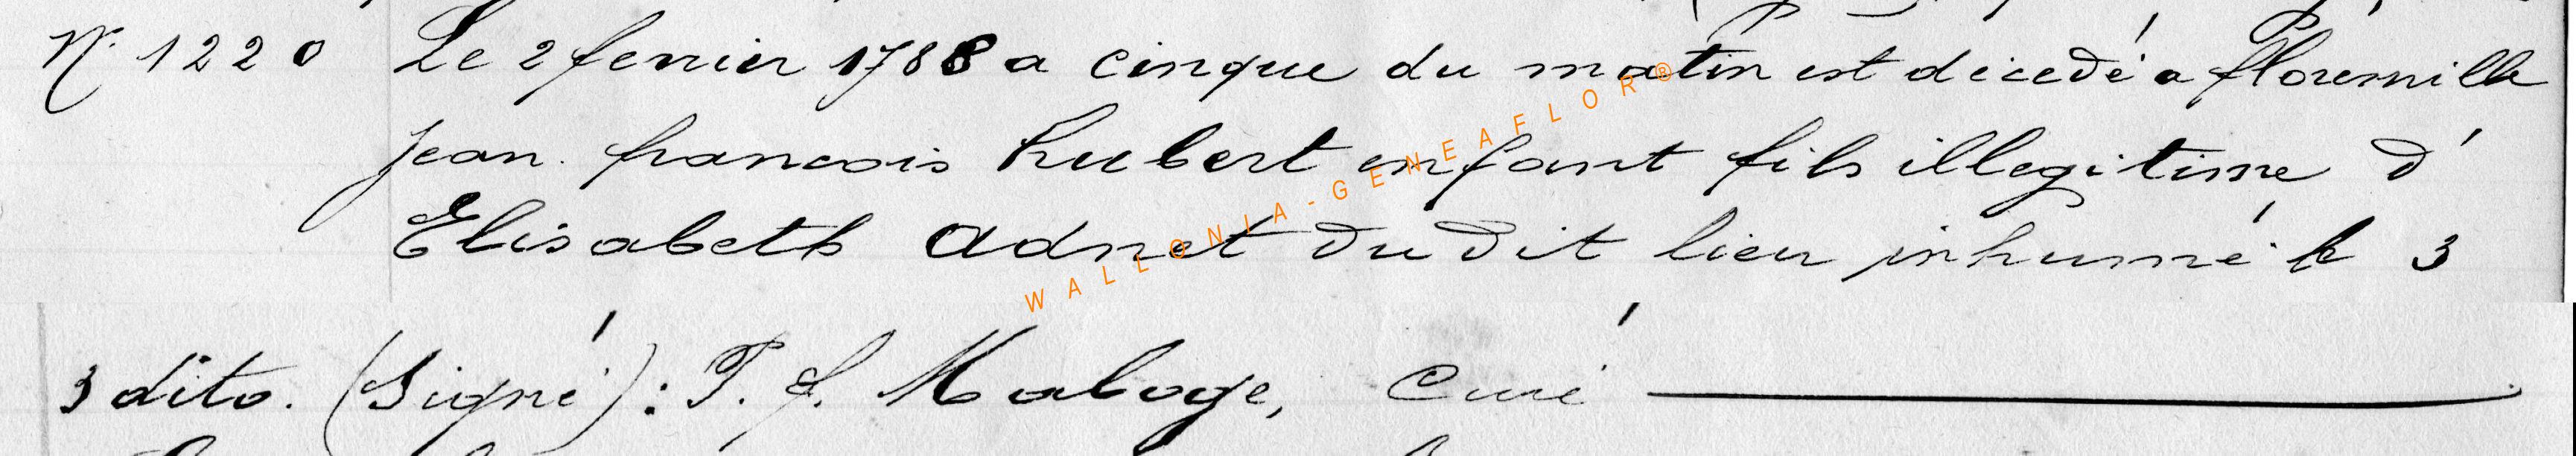 N° 1220 Le 2 fevrier 1788 a cinque du matin est décedé a florenville
jean francois hubert enfant fils illegitime d'
Elisabeth Adnet du dit lieu inhumé le 3
3 dito. (Signé): T. f. Maloge, Curé
WALLONIA-GENEAFLOR®